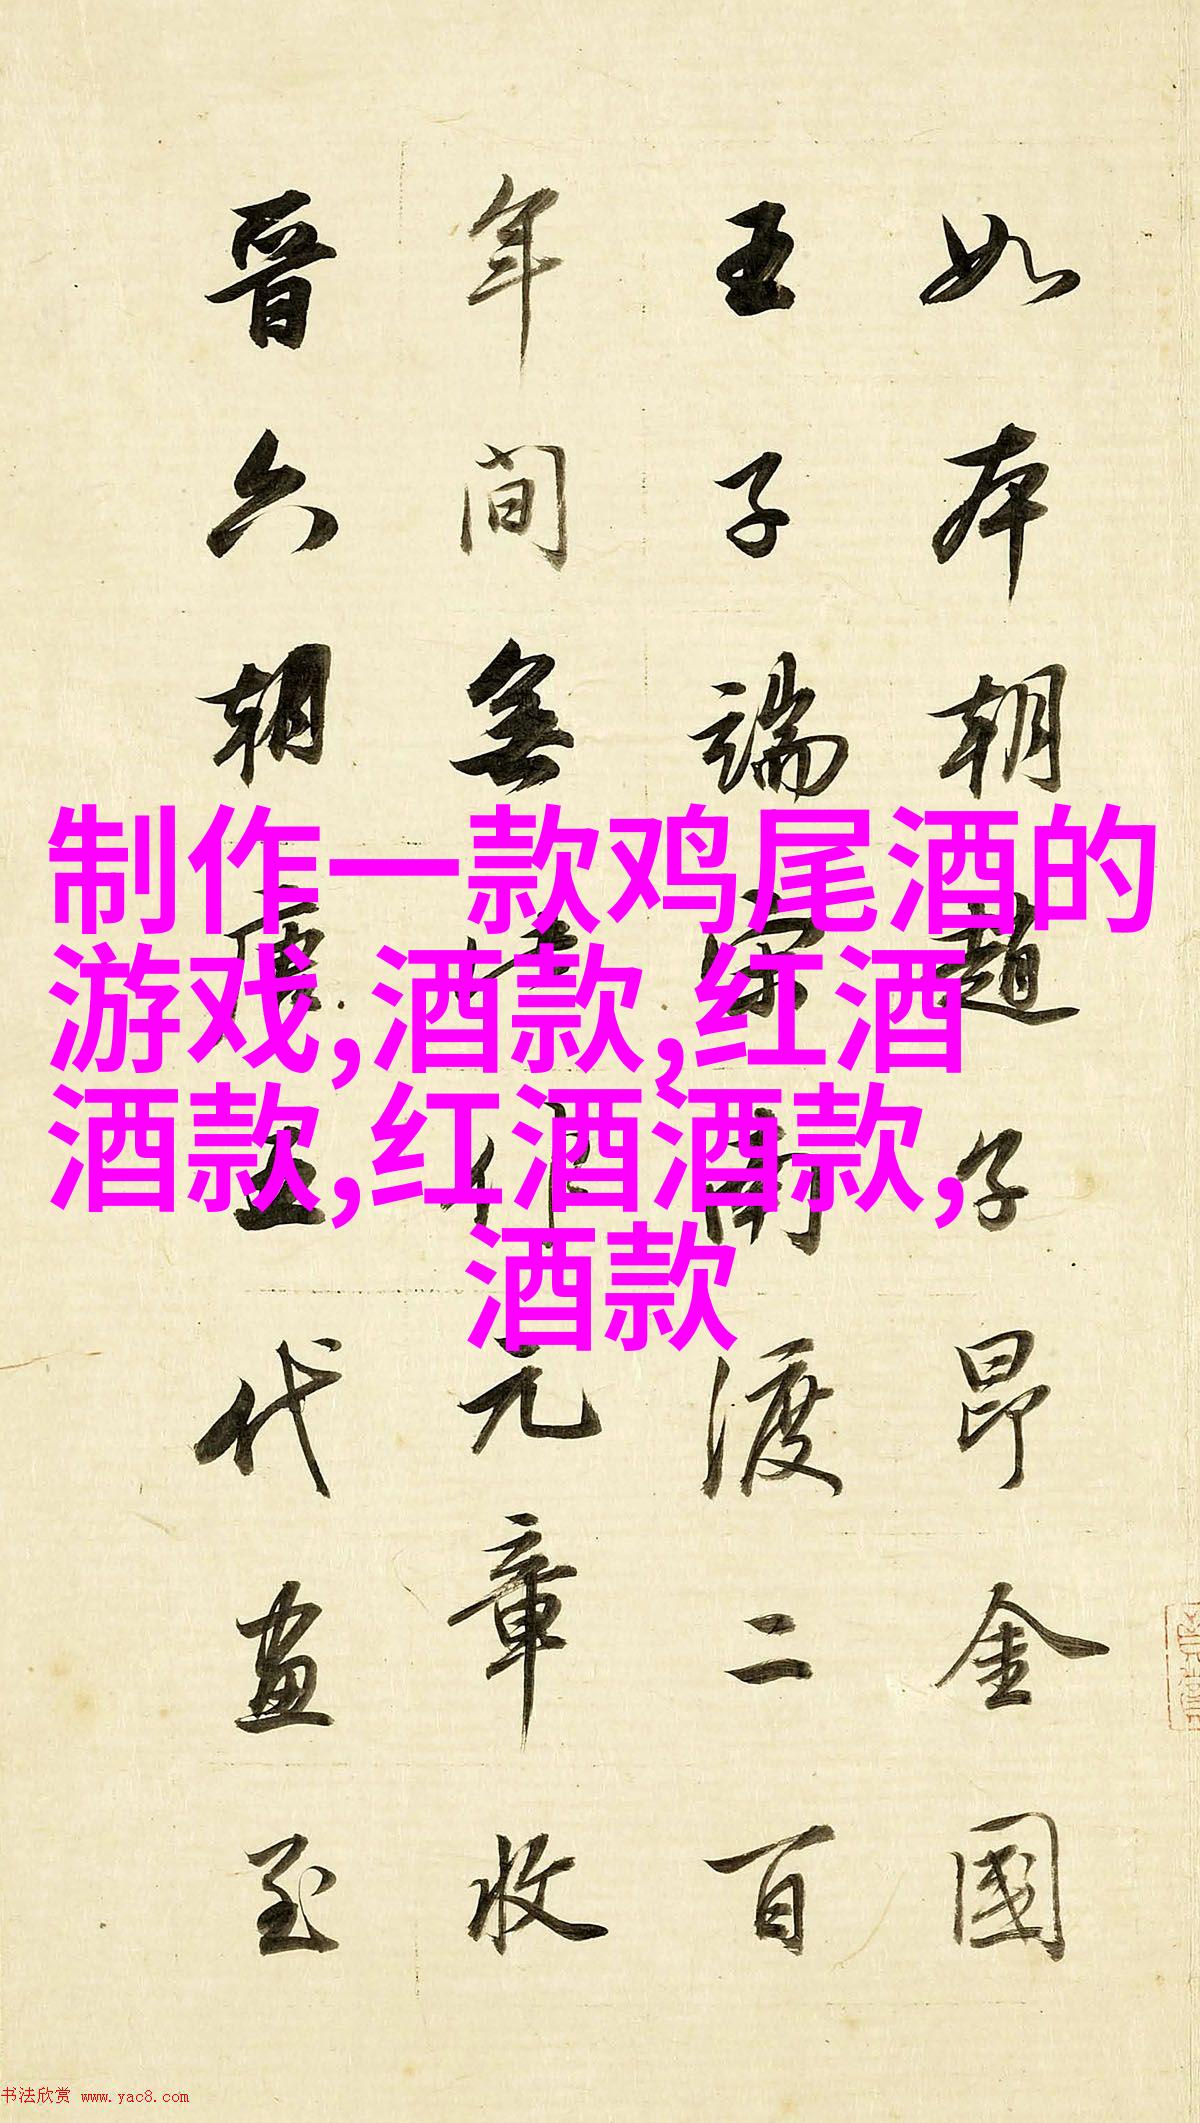 制作一款鸡尾酒的
游戏,酒款,红酒
酒款,红酒酒款,
酒款
如本朝趙子昂金國
王子端宋南渡二百
年間無此作元章收
晉六朝唐五代畫至
书法欣赏 www.yac8.com